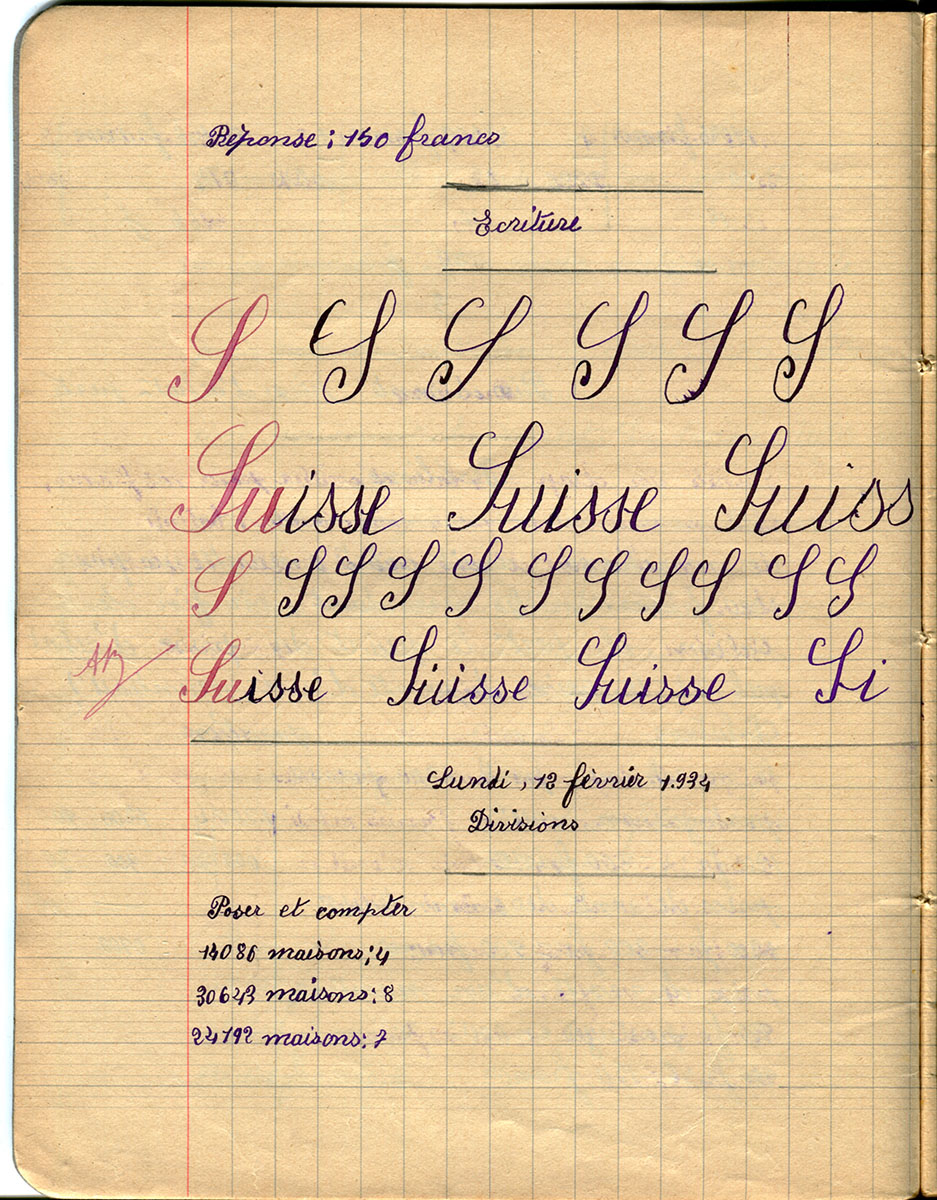 Réponse : 150 francs
Ecriture
S S S S S S
Suisse Suisse Suiss
S S S S S S S S S S S
Suisse Suisse Suisse Si
Lundi, 12 février 1.934
Divisions
Poser et compter
15086 maisons : 4
30643 maisons : 8
24192 maisons : 7